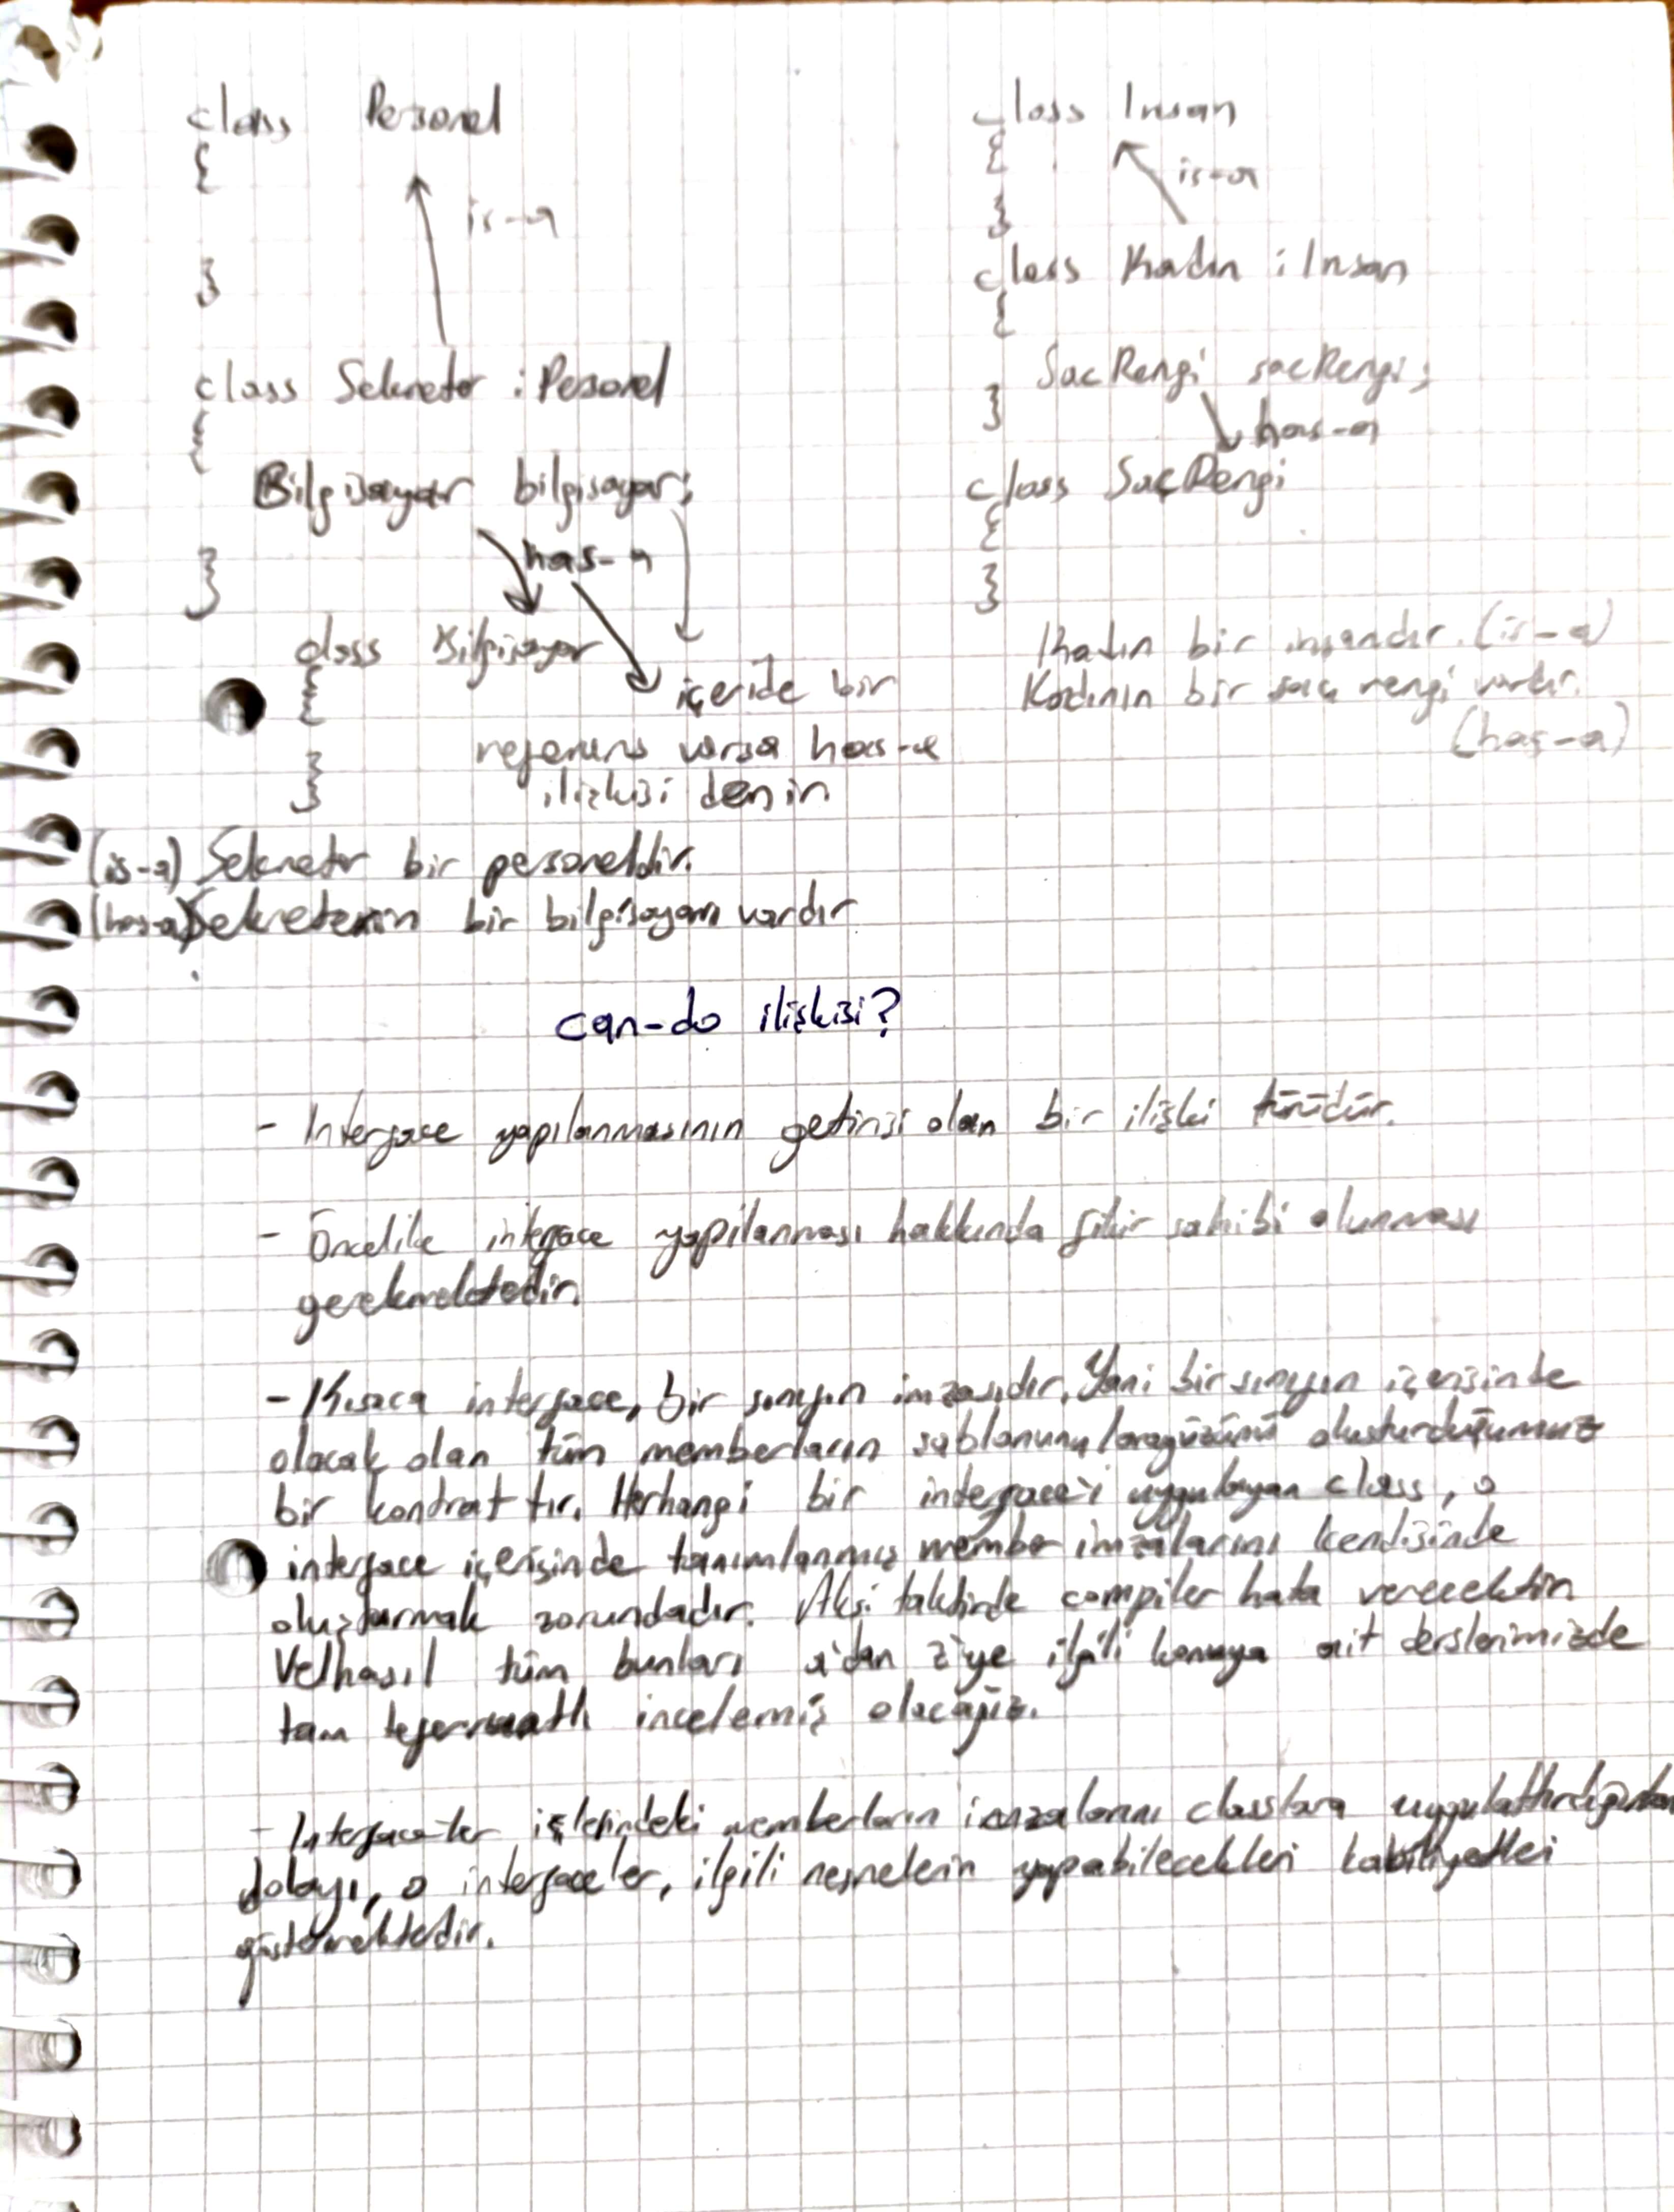 class Personel
{
is-a
}
class Sekreter : Personel
{
Bilgisayar bilgisayar;
has-a
}
class Bilgisayar
{
}
içeride bir
referans varsa has-a
ilişkisi denir.
(is-a) Sekreter bir personeldir.
(has-a) Sekreterin bir bilgisayarı vardır
class Insan
{
is-a
}
class Kadın : Insan
{
SacRengi sacRengi;
}
has-a
class SaçRengi
{
}
Kadın bir insandır. (is-a)
Kadının bir saç rengi vardır.
(has-a)
can-do ilişkisi?
- Interface yapılanmasının getirisi olan bir ilişki türüdür.
- Öncelikle interface yapılanması hakkında fikir sahibi olunması
gerekmektedir.
- Kısaca interface, bir sınıfın imzasıdır. Yani bir sınıfın içerisinde
olacak olan tüm memberların şablonunu/arayüzünü oluşturduğumuz
bir kontrattır. Herhangi bir interface'i uygulayan class, o
interface içerisinde tanımlanmış member imzalarını kendisinde
oluşturmak zorundadır. Aksi taktirde compiler hata verecektir.
Velhasıl tüm bunları a'dan z'ye ilgili konuya ait derslerimizde
tam teferruatlı incelemiş olacağız.
- Interface'ler içlerindeki memberların imzalarını classlara uygulattırdığından
dolayı, o interfaceler, ilgili nesnelerin yapabilecekleri kabiliyetleri
göstermektedir.